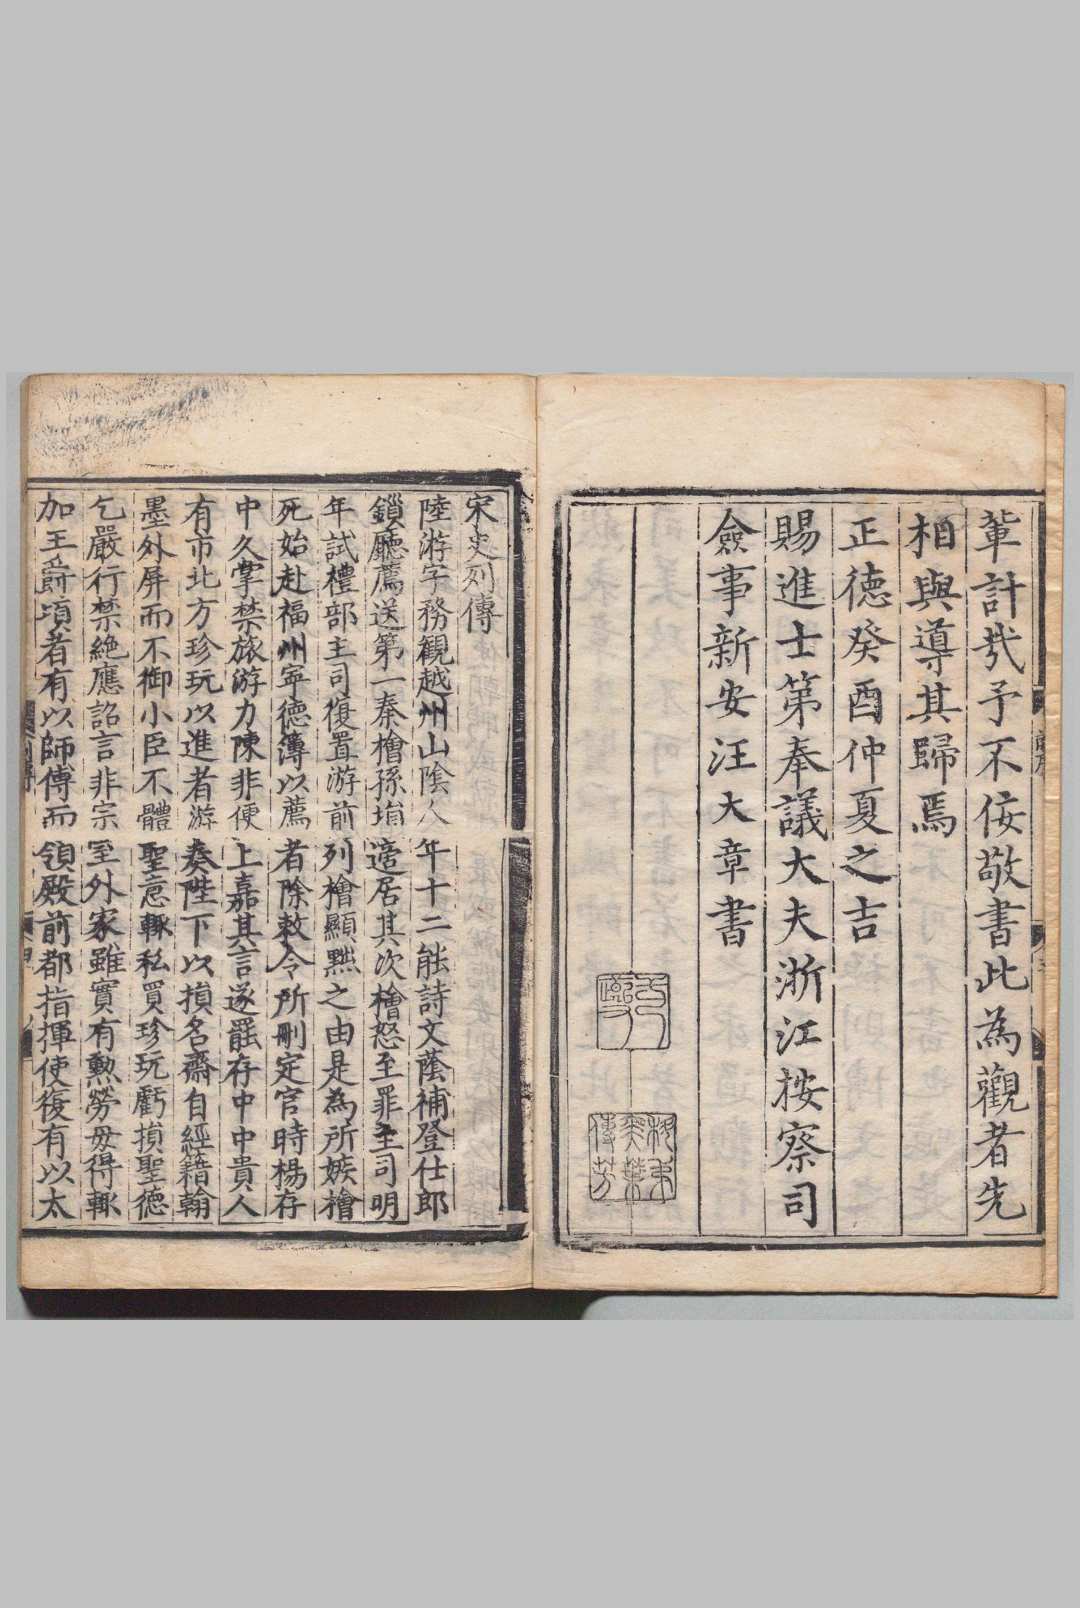 軰計㢤予不佞敬書此為觀者先
相與導其歸焉
正德癸酉仲夏之吉
賜進士第奉議大夫浙江按察司
僉事新安汪大章書
宋史列傳
陸游字務觀越州山陰人年十二能詩文蔭補登仕郎
鎻廳薦送第一秦檜孫塤適居其次檜怒至罪主司明
年試禮部主司復置游前列檜顯黜之由是為所嫉檜
死始赴福州寧德簿以薦者除敕令所刪定官時楊存
中久掌禁旅游力陳非便上嘉其言遂罷存中中貴人
有市北方珍玩以進者游奏陛下以損名齋自經籍翰
墨外屏而不御小臣不體聖意輒私買珍玩虧損聖德
乞嚴行禁絶應詔言非宗室外家雖實有勲勞毋得輒
加王爵頃者有以師傅而領殿前都指揮使復有以太